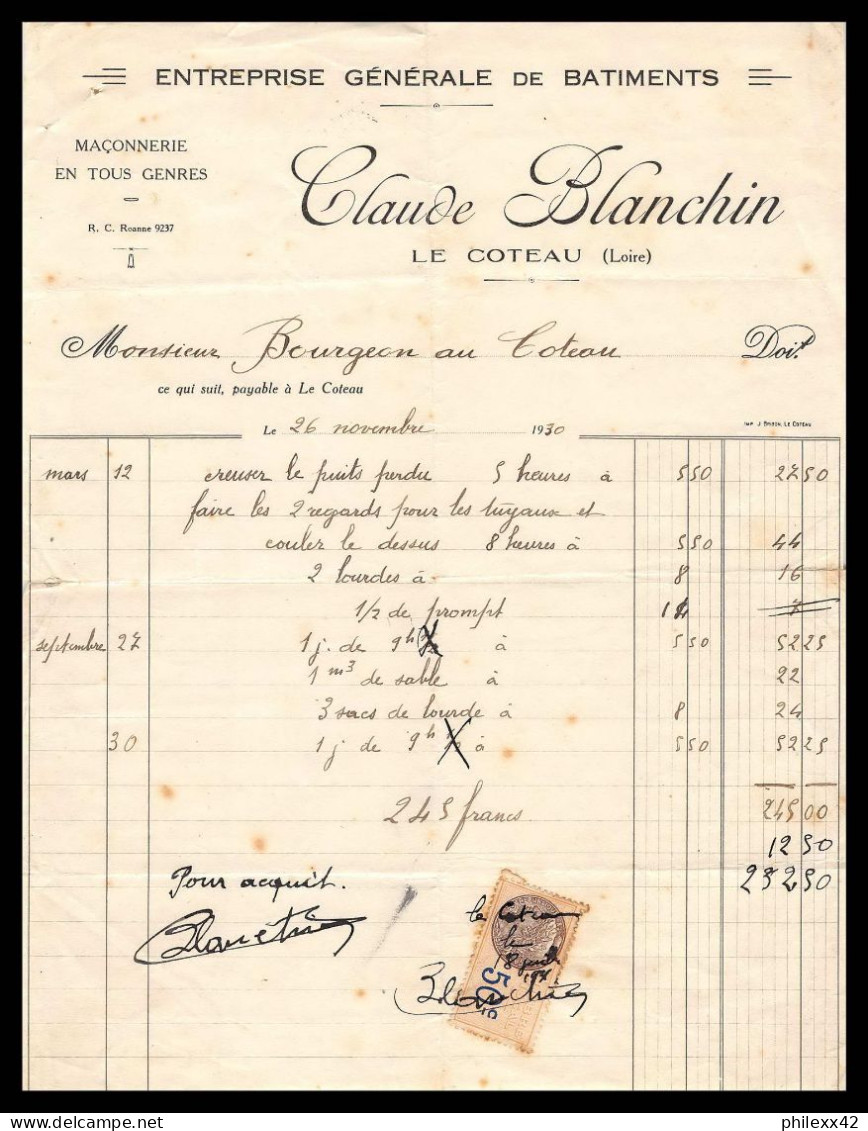 ENTREPRISE GÉNÉRALE DE BATIMENTS
MAÇONNERIE
EN TOUS GENRES
R. C. Roanne 9237
Claude Blanchin
LE COTEAU (Loire)
Monsieur Bourgeon au Coteau Doit
ce qui suit, payable à Le Coteau
IMP. J. BRIRON, LE COTEAU
Le 26 novembre 1930
mars 12 creuser le puits perdu 5 heures à 5 50 27 50
faire les 2 regards pour les tuyaux et
couler le dessus 8 heures à 5 50 44
2 lourdes à 8 16
1/2 de prompt 14 7
septembre 27 1 j. de 9h 1/2 à 5 50 52 25
1 m3 de sable à 22
3 sacs de lourde à 8 24
30 1 j de 9h 1/2 à 5 50 52 25
245 francs 245 00
12 50
232 50
Pour acquit.
Blanchin
le Coteau
le
18
50c
Blanchin
philexx42